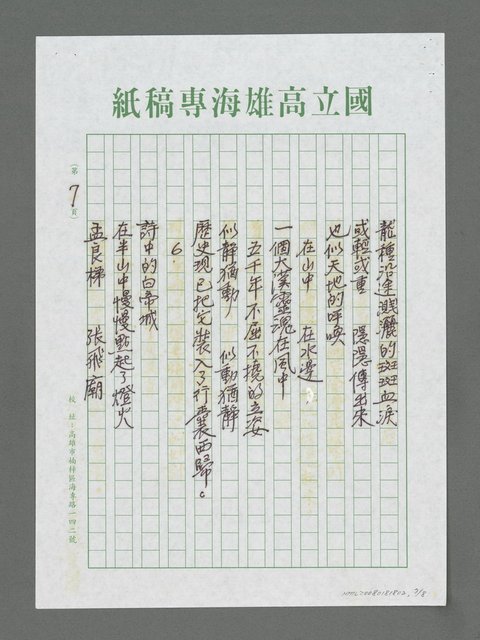 國立高雄海專稿紙
龍種沿途濺灑的斑斑血淚
或輕或重　隱隱傳出來
也似天地的呼喚
在山中　在水邊，
一個大漢靈魂在風中
五千年不屈不撓的立姿
似靜猶動　似動猶靜
歷史現已把它裝入了行囊西歸。
6.
詩中的白帝城
在半山中慢慢點起了燈火
孟良梯　張飛廟
(第7頁)
校址：高雄市楠梓區海專路一四二號
NMTL20080181812, 7/8